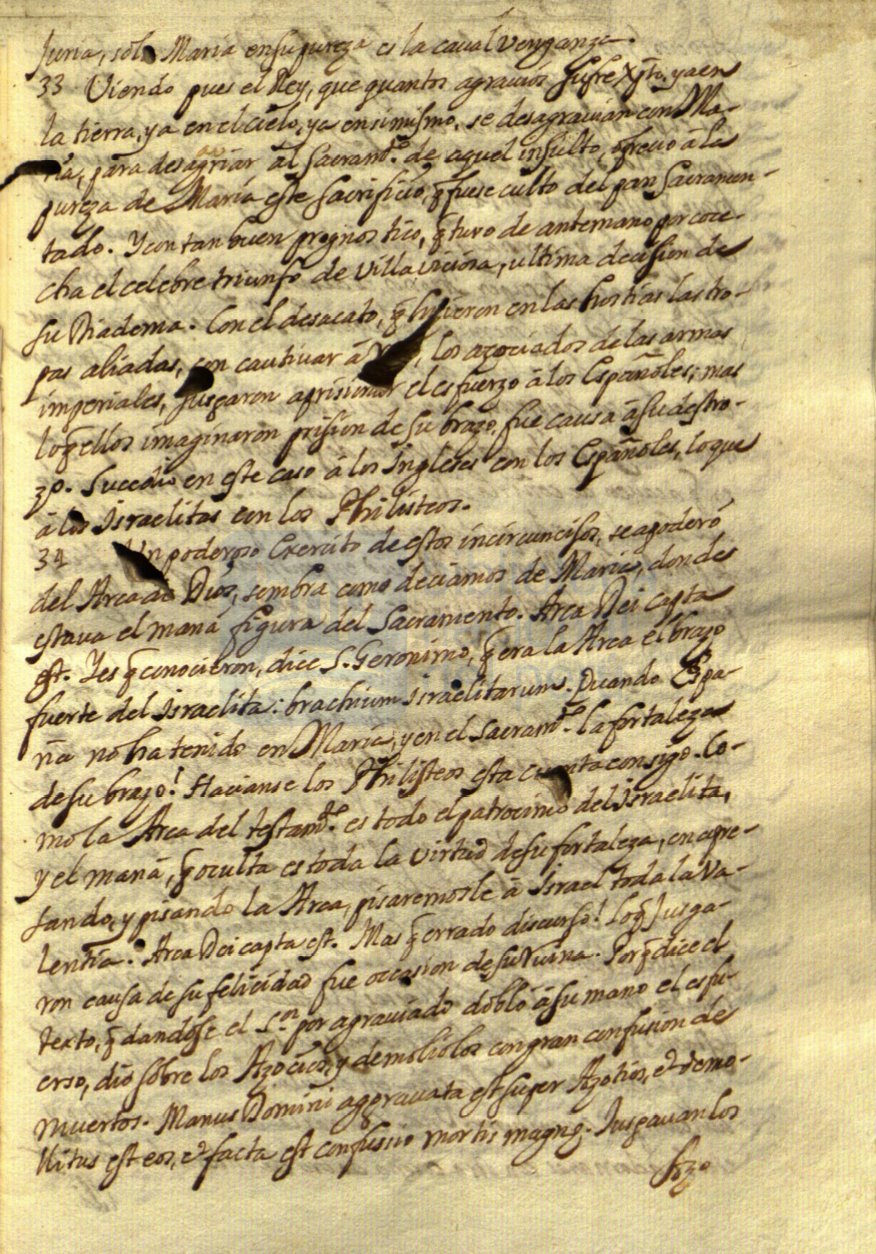 Juria, solo Maria en su pureza es la caval venganza.
33 Viendo pues el Rey, que quantos agravios sufre Xpto. ya en
la tierra, ya en el cielo, ya en simismo, se desagravian con Ma-
ria, para desagriar al Sacramto. de aquel insulto, ofrecio à la
pureza de Maria este sacrificio, q̃ fuese culto del pan Sacramen-
tado. Y con tan buen prognostico, q̃ tuvo de antemano por cose-
cha el celebre triunfo de Villaviciosa, ultima decision de
su Diadema. Con el desacato, q̃ hizieron en las hostias las tro-
pas aliadas, con cautivar à los azociados de las armas
imperiales, jusgaron aprisionar el esfuerzo à los Españoles; mas
lo q̃ ellos imaginaron prision de su brazo, fue causa à su destro-
zo. Succedio en este caso à los Ingleses con los Españoles, lo que
à los Israelitas con los Philisteos.
34 Un poderoso Exercito de estos incircuncisos, se apoderò
del Arca de Dios, sombra como deciamos de Maria, donde
estava el manà figura del Sacramento. Arca Dei capta
est. Y es q̃ conocieron, dice S. Geronimo, q̃ era la Arca el brazo
fuerte del Israelita: brachium israelitarum. Quando Espa-
ña no ha tenido en Maria, y en el Sacramto. la fortaleza
de su brazo! Hacianse los Philisteos esta cuenta consigo. Co-
mo la Arca del testamto. es todo el patrocinio del Israelita,
y el manà, q̃ oculta es toda la virtud de su fortaleza, en apre-
sando, y pisando la Arca, pisaremosle à Israel toda la va-
lentia. Arca Dei capta est. Mas q̃ errado discurso! Lo q̃ Jusga-
ron causa de su felicidad fue occasion de su ruina. Porq̃ dice el
texto, q̃ dandose el Sor. por agraviado doblò à su mano el esfu-
erso, diò sobre los Azocios, y demoliolos con gran confusion de
muertos. Manus Domini aggravata est super Azotios, et demo-
litus est eos, et facta est confussio mortis magnę. Jusgavan los
Azo